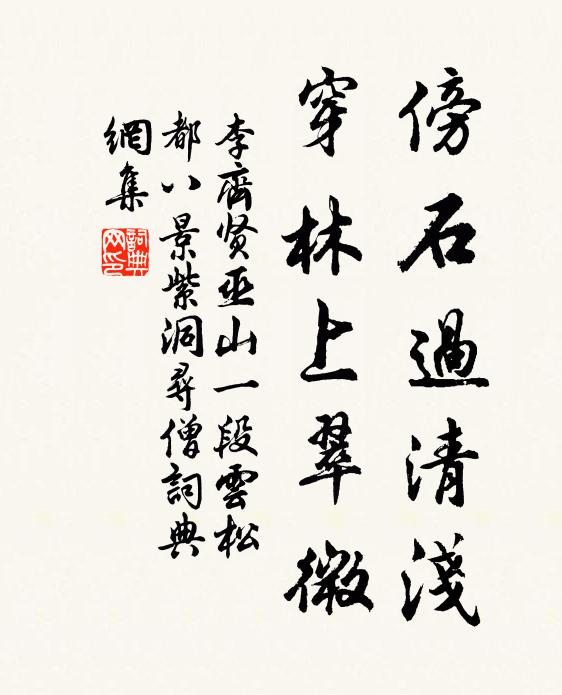 傍石過清淺
穿林上翠微
李齊贤巫山一段雲松
都八景紫洞尋僧詞典
網集
詞典
网印